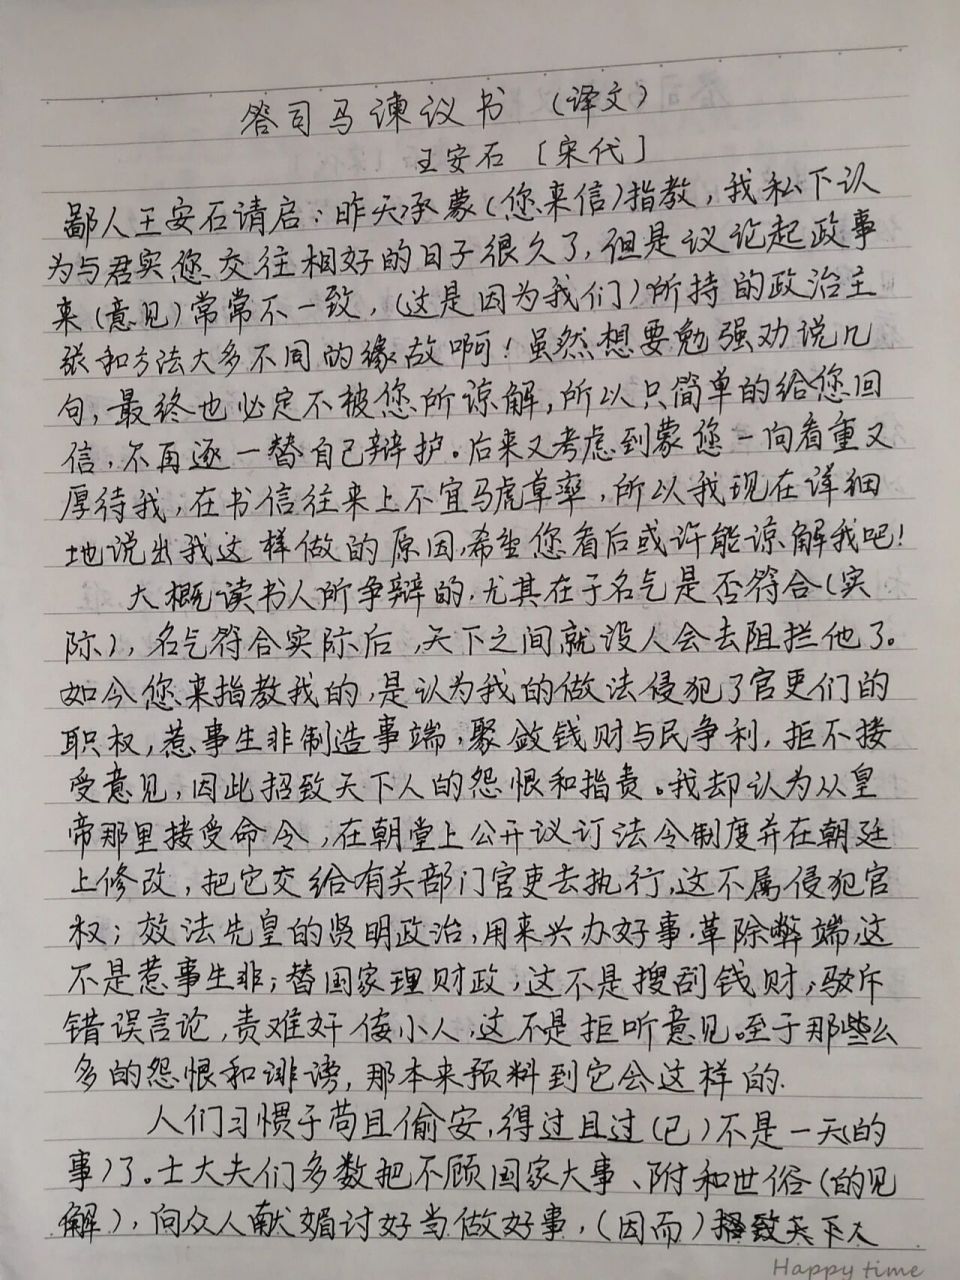 答司马谏议书 （译文）
王安石 [宋代]
鄙人王安石请启：昨天承蒙(您来信)指教，我私下认
为与君实您交往相好的日子很久了，但是议论起政事
来(意见)常常不一致，(这是因为我们)所持的政治主
张和方法大多不同的缘故啊！虽然想要勉强劝说几
句，最终也必定不被您所谅解，所以只简单的给您回
信，不再逐一替自己辩护。后来又考虑到蒙您一向看重又
厚待我，在书信往来上不宜马虎草率，所以我现在详细
地说出我这样做的原因，希望您看后或许能谅解我吧！
大概读书人所争辩的，尤其在于名气是否符合(实
际)，名气符合实际后，天下之间就没人会去阻拦他了。
如今您来指教我的，是认为我的做法侵犯了官吏们的
职权，惹事生非制造事端，聚敛钱财与民争利，拒不接
受意见，因此招致天下人的怨恨和指责。我却认为从皇
帝那里接受命令，在朝堂上公开议订法令制度并在朝廷
上修改，把它交给有关部门官吏去执行，这不属侵犯官
权；效法先皇的贤明政治，用来兴办好事，革除弊端，这
不是惹事生非；替国家理财政，这不是搜刮钱财，驳斥
错误言论，责难奸佞小人，这不是拒听意见。至于那些么
多的怨恨和诽谤，那本来预料到它会这样的.
人们习惯于苟且偷安，得过且过(已)不是一天(的
事)了。士大夫们多数把不顾国家大事、附和世俗(的见
解)，向众人献媚讨好当做好事，(因而)招致天下人
Happy time